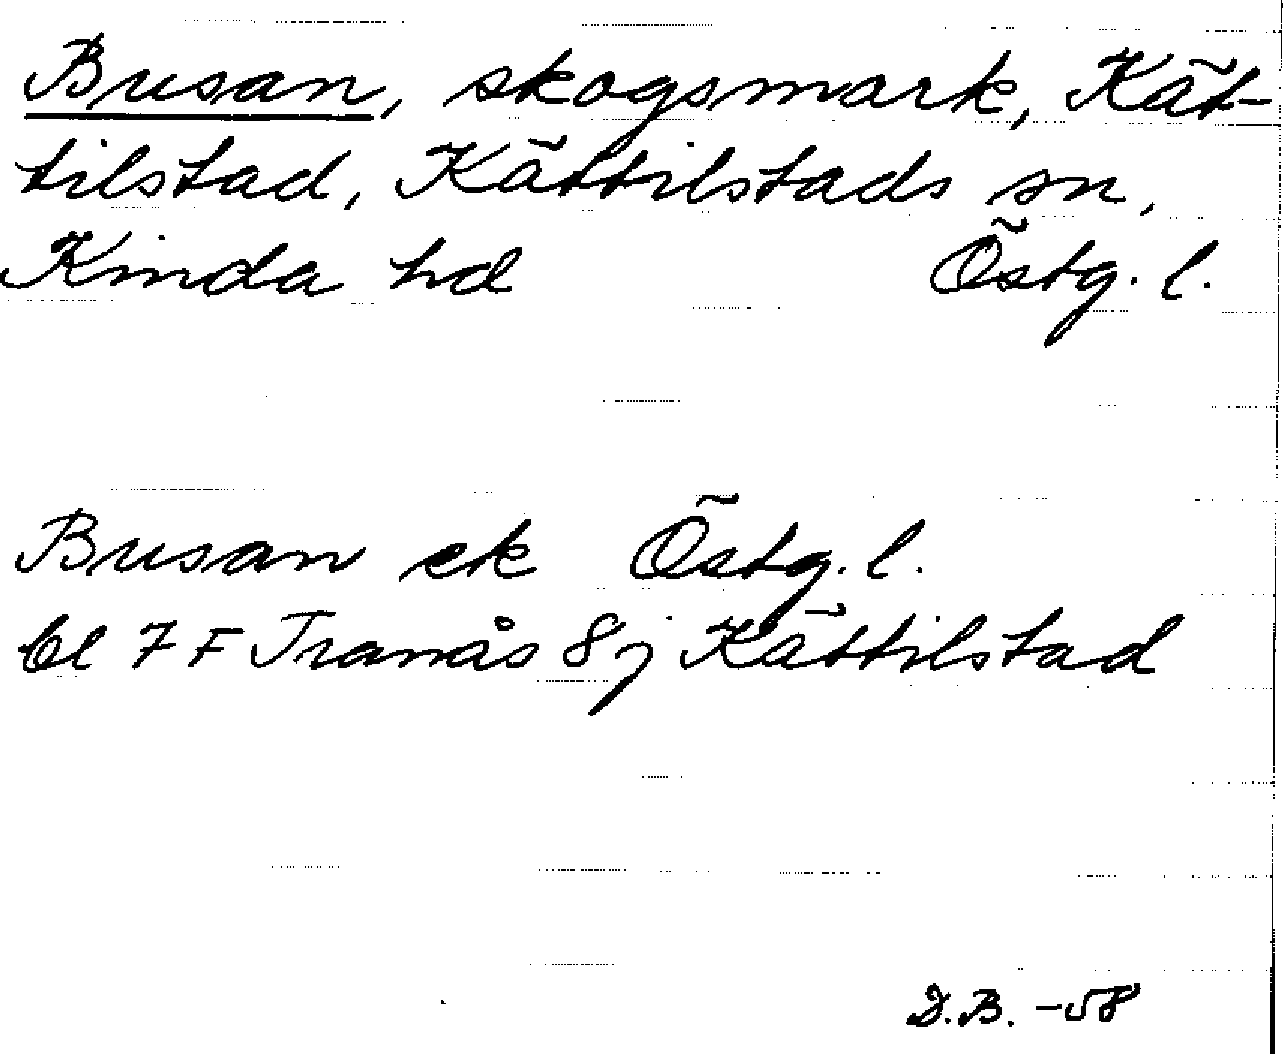 Busan, skogsmark, Kät-
tilstad, Kättilstads sn,
Kinda hd Östg. l.
Busan ek Östg. l.
bl 7 F Tranås 8j Kättilstad
D.B. -58